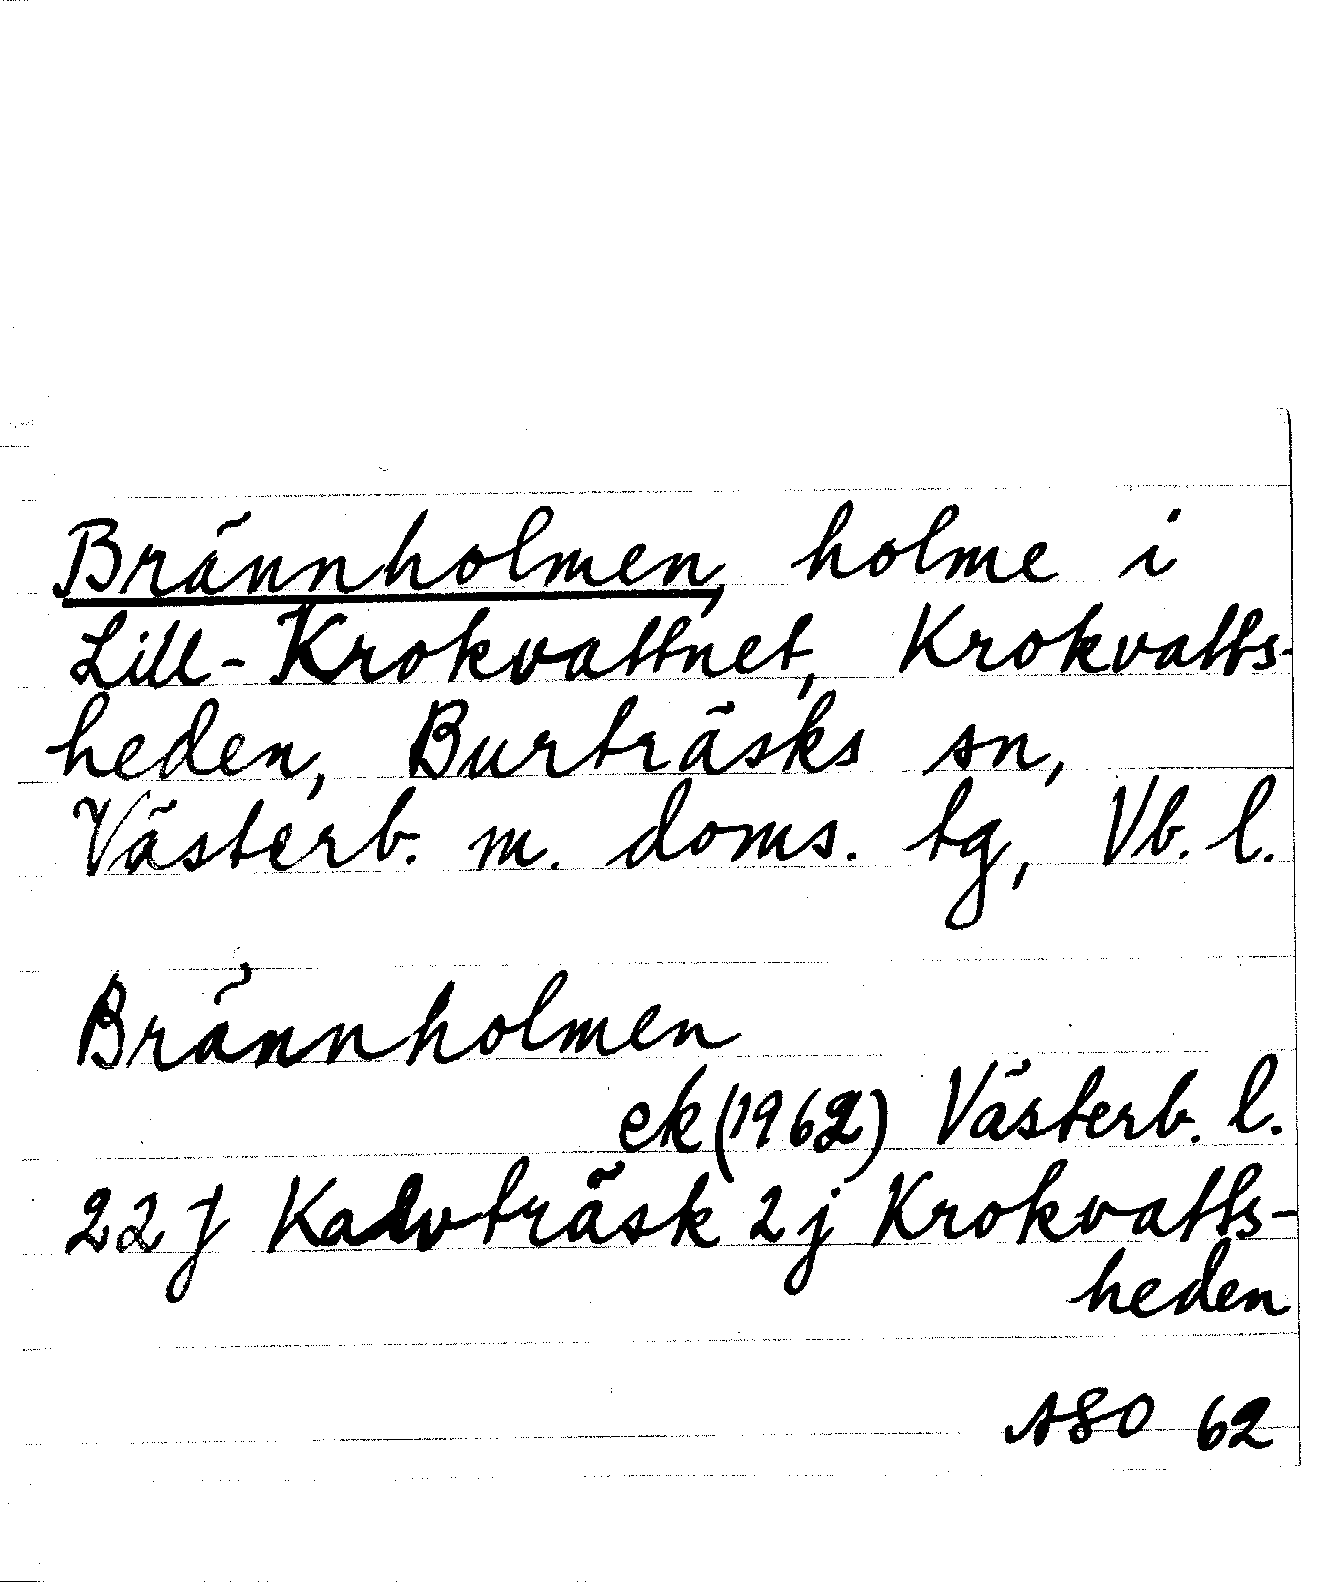 Brännholmen, holme i
Lill-Krokvattnet, Krokvatts-
heden, Burträsks sn,
Västerb. m. doms. tg, Vb. l.
Brännholmen
ek (1962) Västerb. l.
22 j Kalvträsk 2 j Krokvatts-
heden
ASO 62